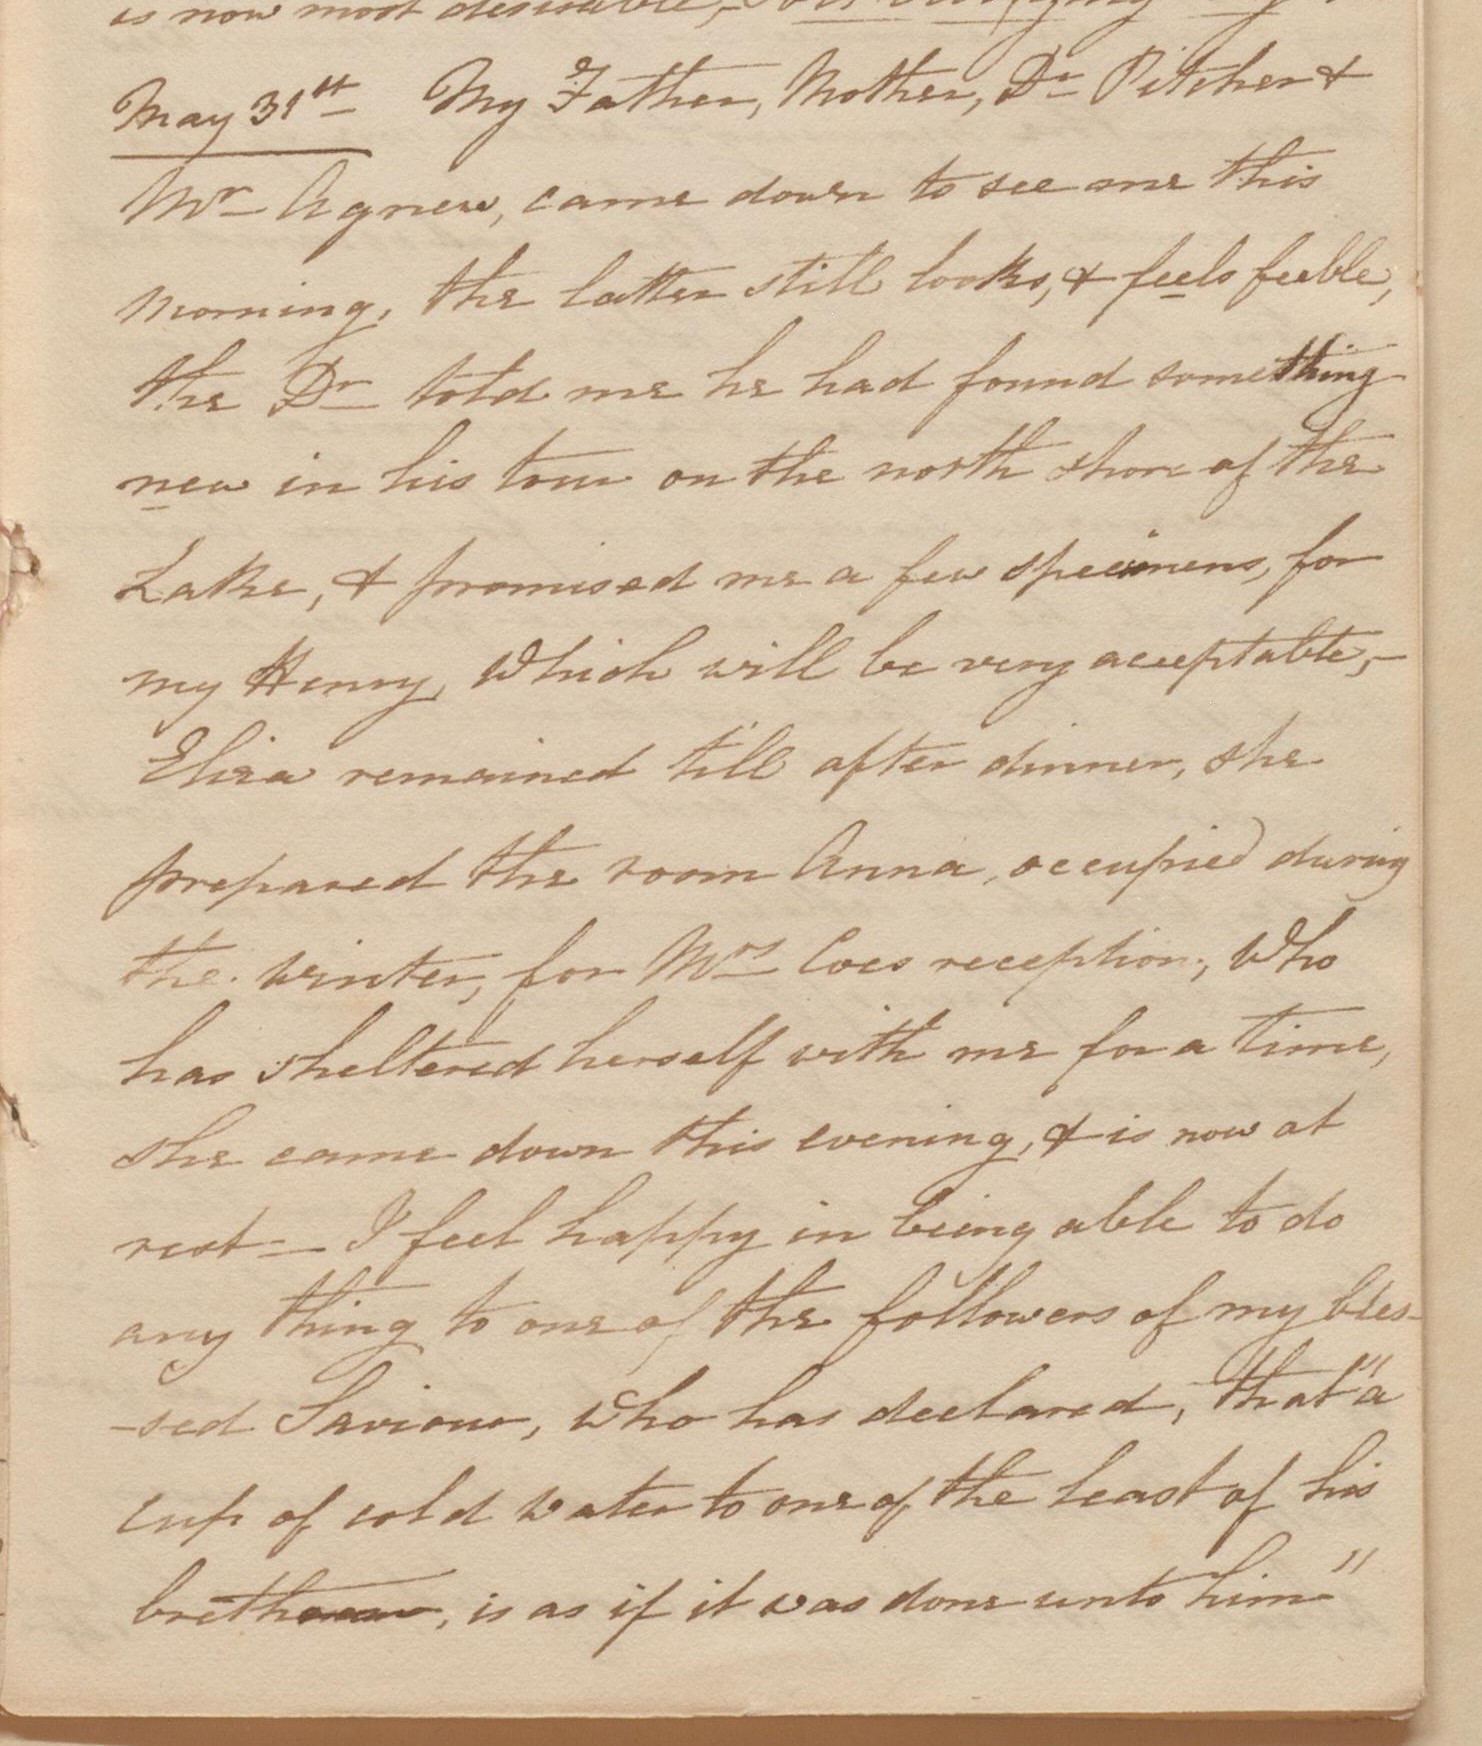 is now most desirable,
May 31st My Father, Mother, Dr Pitcher &
Mr Agnew, came down to see me this
morning, the latter still looks, & feels feeble,
the Dr told me he had found something
new in his tour on the north shore of the
Lake, & promised me a few specimens, for
my Henry, which will be very acceptable,—
Eliza remained till after dinner, she
prepared the room Anna, occupied during
the winter, for Mrs Coes reception, who
has sheltered herself with me for a time,
she came down this evening, & is now at
rest — I feel happy in being able to do
any thing to one of the followers of my bles-
-sed Saviour, who has declared, that "a
cup of cold water to one of the least of his
brethren, is as if it was done unto him"